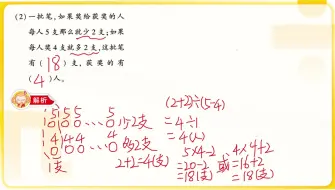 (2)一批笔,如果奖给获奖的人
每人5支那么就少2支;如果
每人奖4支就多2支,这批笔
有(18)支,获奖的有
(4)人。
解析
5 5 5 … 5 少2支
4 4 4 … 4 多2支
1支
2+2=4(支)
(2+2)÷(5-4)
=4÷1
=4(人)
5×4-2 或 4×4+2
=20-2 =16+2
=18(支) =18(支)